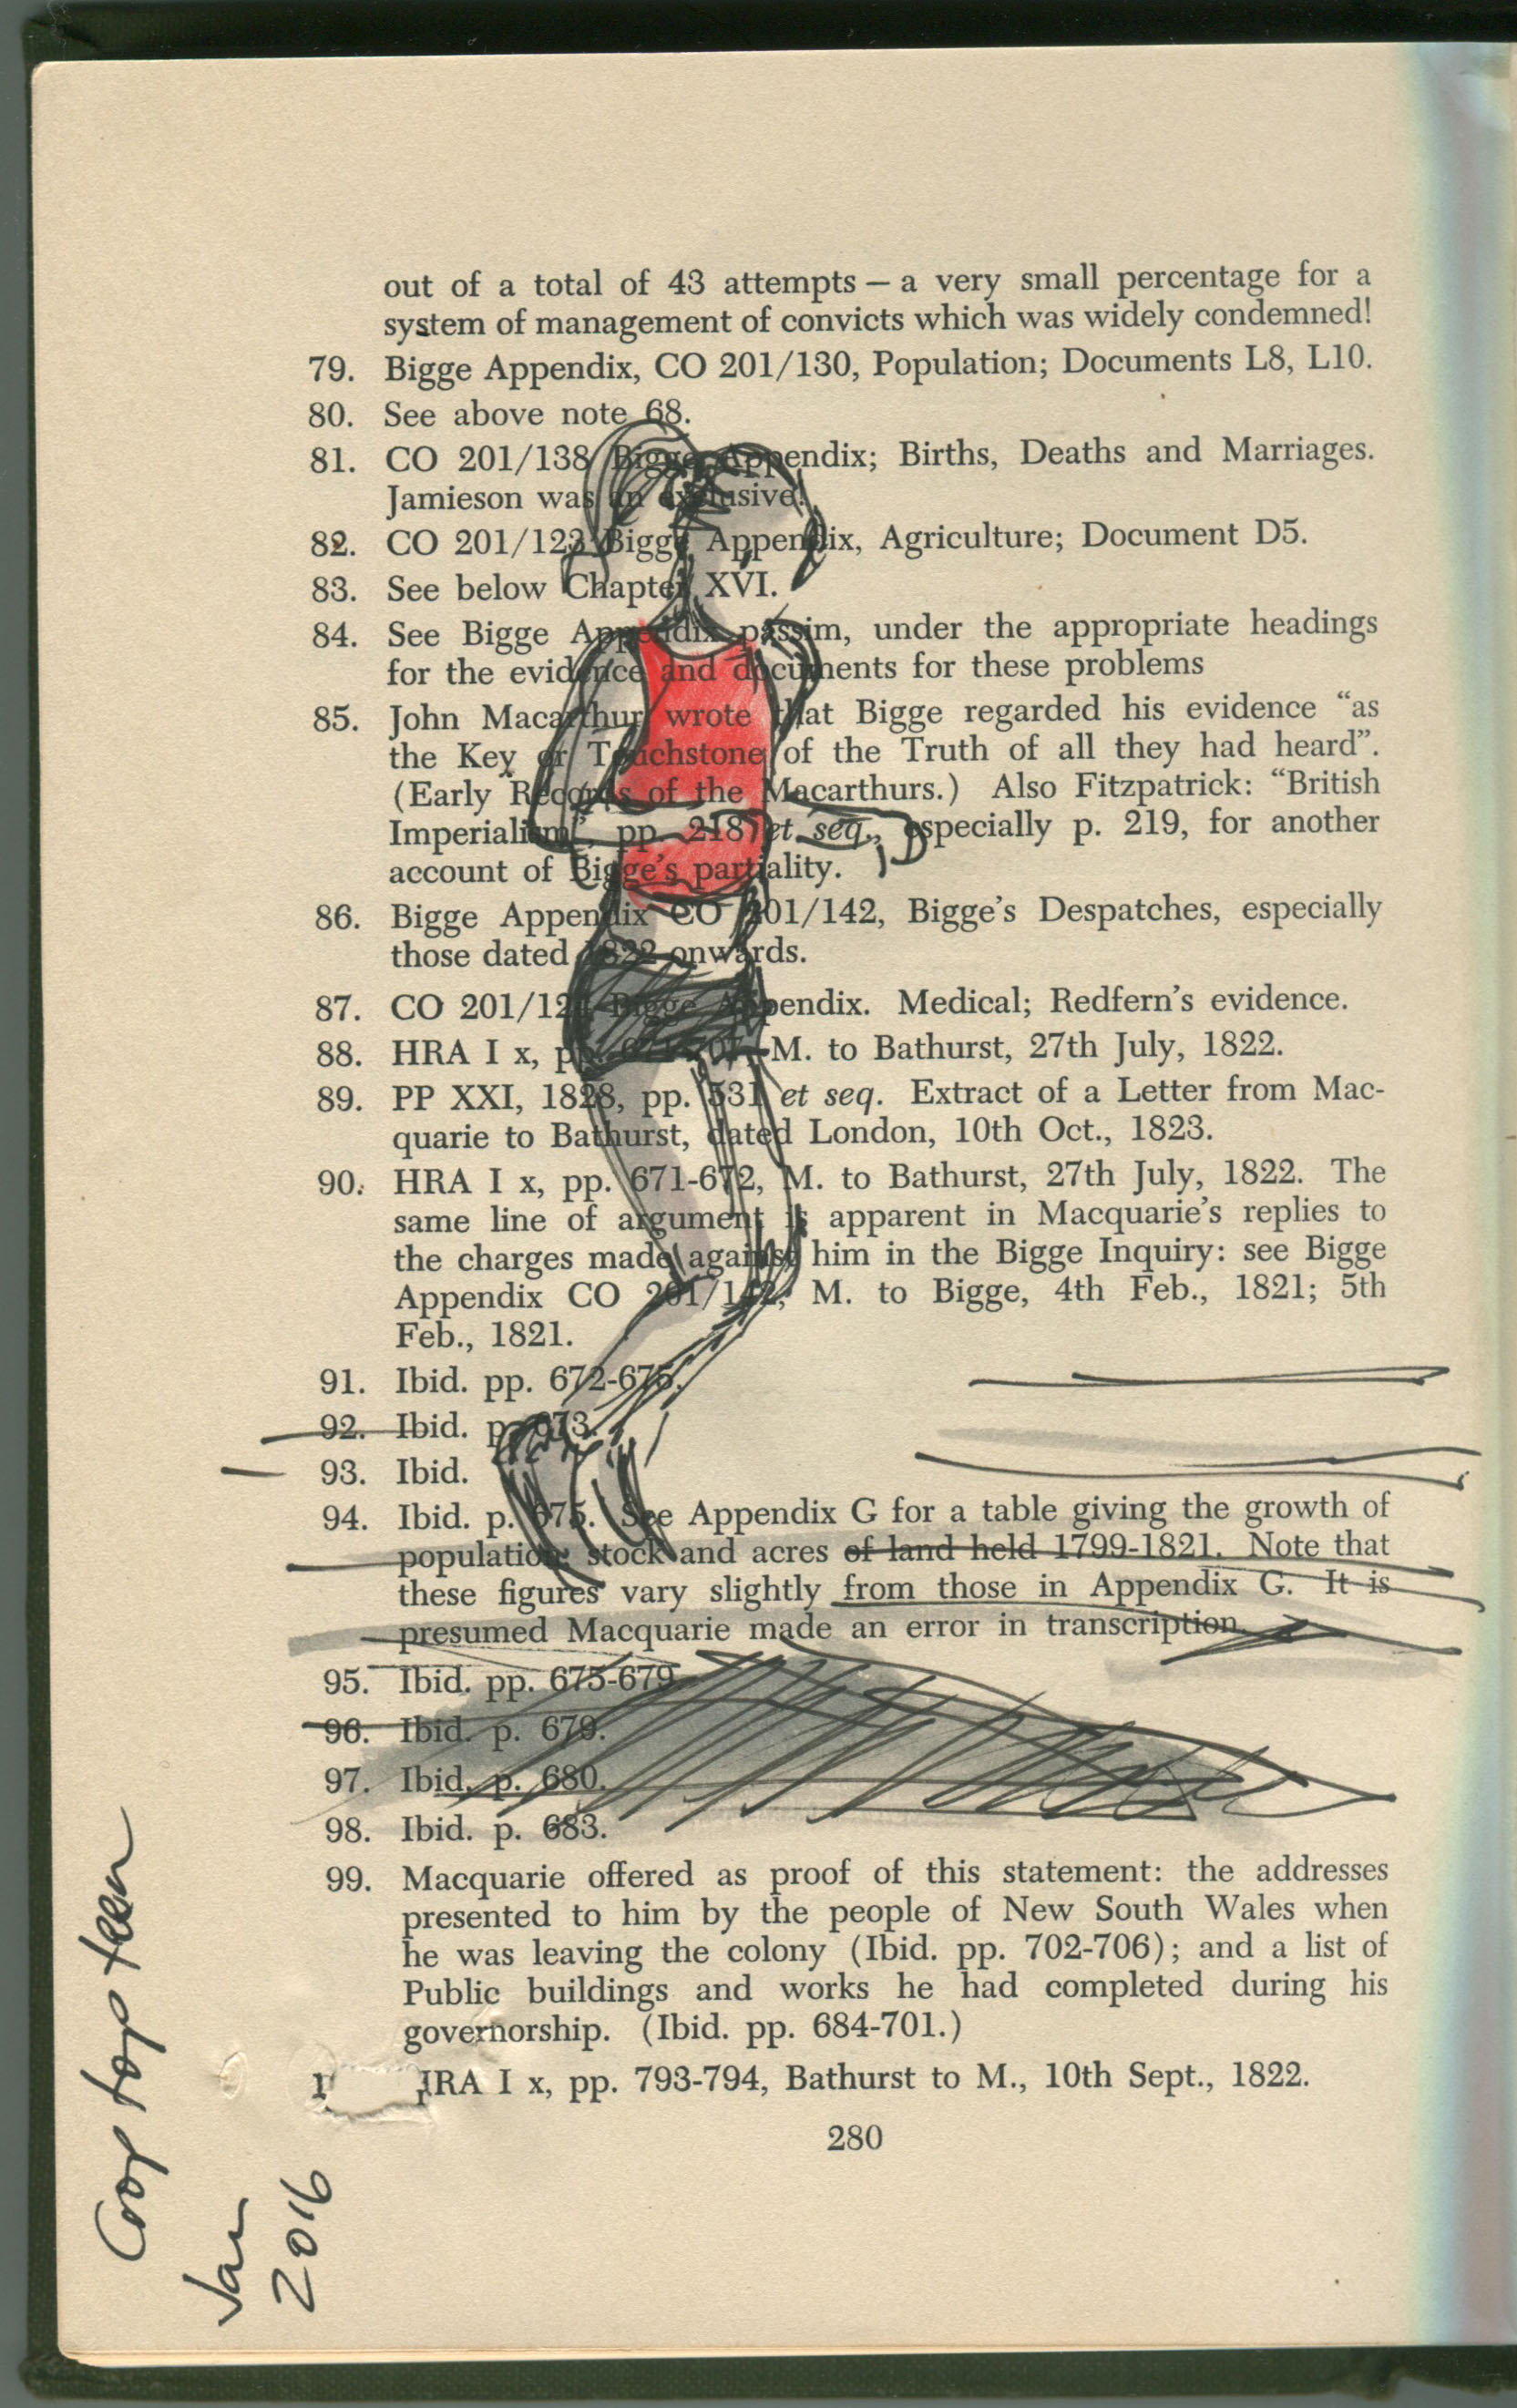 out of a total of 43 attempts – a very small percentage for a
system of management of convicts which was widely condemned!
79. Bigge Appendix, CO 201/130, Population; Documents L8, L10.
80. See above note 68.
81. CO 201/138 Bigge Appendix; Births, Deaths and Marriages.
Jamieson was an exclusive!
82. CO 201/123 Bigge Appendix, Agriculture; Document D5.
83. See below Chapter XVI.
84. See Bigge Appendix passim, under the appropriate headings
for the evidence and documents for these problems
85. John Macarthur wrote that Bigge regarded his evidence “as
the Key or Touchstone of the Truth of all they had heard”.
(Early Records of the Macarthurs.) Also Fitzpatrick: “British
Imperialism”, pp. 218 et seq., especially p. 219, for another
account of Bigge’s partiality.
86. Bigge Appendix CO 201/142, Bigge’s Despatches, especially
those dated 1822 onwards.
87. CO Bigge Appendix. Medical; Redfern’s evidence.
88. HRA I x, pp. M. to Bathurst, 27th July, 1822.
89. PP XXI, 1828, pp. 531 et seq. Extract of a Letter from Mac-
quarie to Bathurst, dated London, 10th Oct., 1823.
90. HRA I x, pp. 671-672, M. to Bathurst, 27th July, 1822. The
same line of argument is apparent in Macquarie’s replies to
the charges made against him in the Bigge Inquiry: see Bigge
Appendix CO 201/142, M. to Bigge, 4th Feb., 1821; 5th
Feb., 1821.
91. Ibid. pp. 672-675.
92. Ibid. p. 673.
93. Ibid.
94. Ibid. p. 675. See Appendix G for a table giving the growth of
population, stock and acres of land held 1799-1821. Note that
these figures vary slightly from those in Appendix G. It is
presumed Macquarie made an error in transcription.
95. Ibid. pp. 675-679.
96. Ibid. p. 679.
97. Ibid. p. 680.
98. Ibid. p. 683.
99. Macquarie offered as proof of this statement: the addresses
presented to him by the people of New South Wales when
he was leaving the colony (Ibid. pp. 702-706); and a list of
Public buildings and works he had completed during his
governorship. (Ibid. pp. 684-701.)
1 HRA I x, pp. 793-794, Bathurst to M., 10th Sept., 1822.
280
Crop top teen
Jan
2016